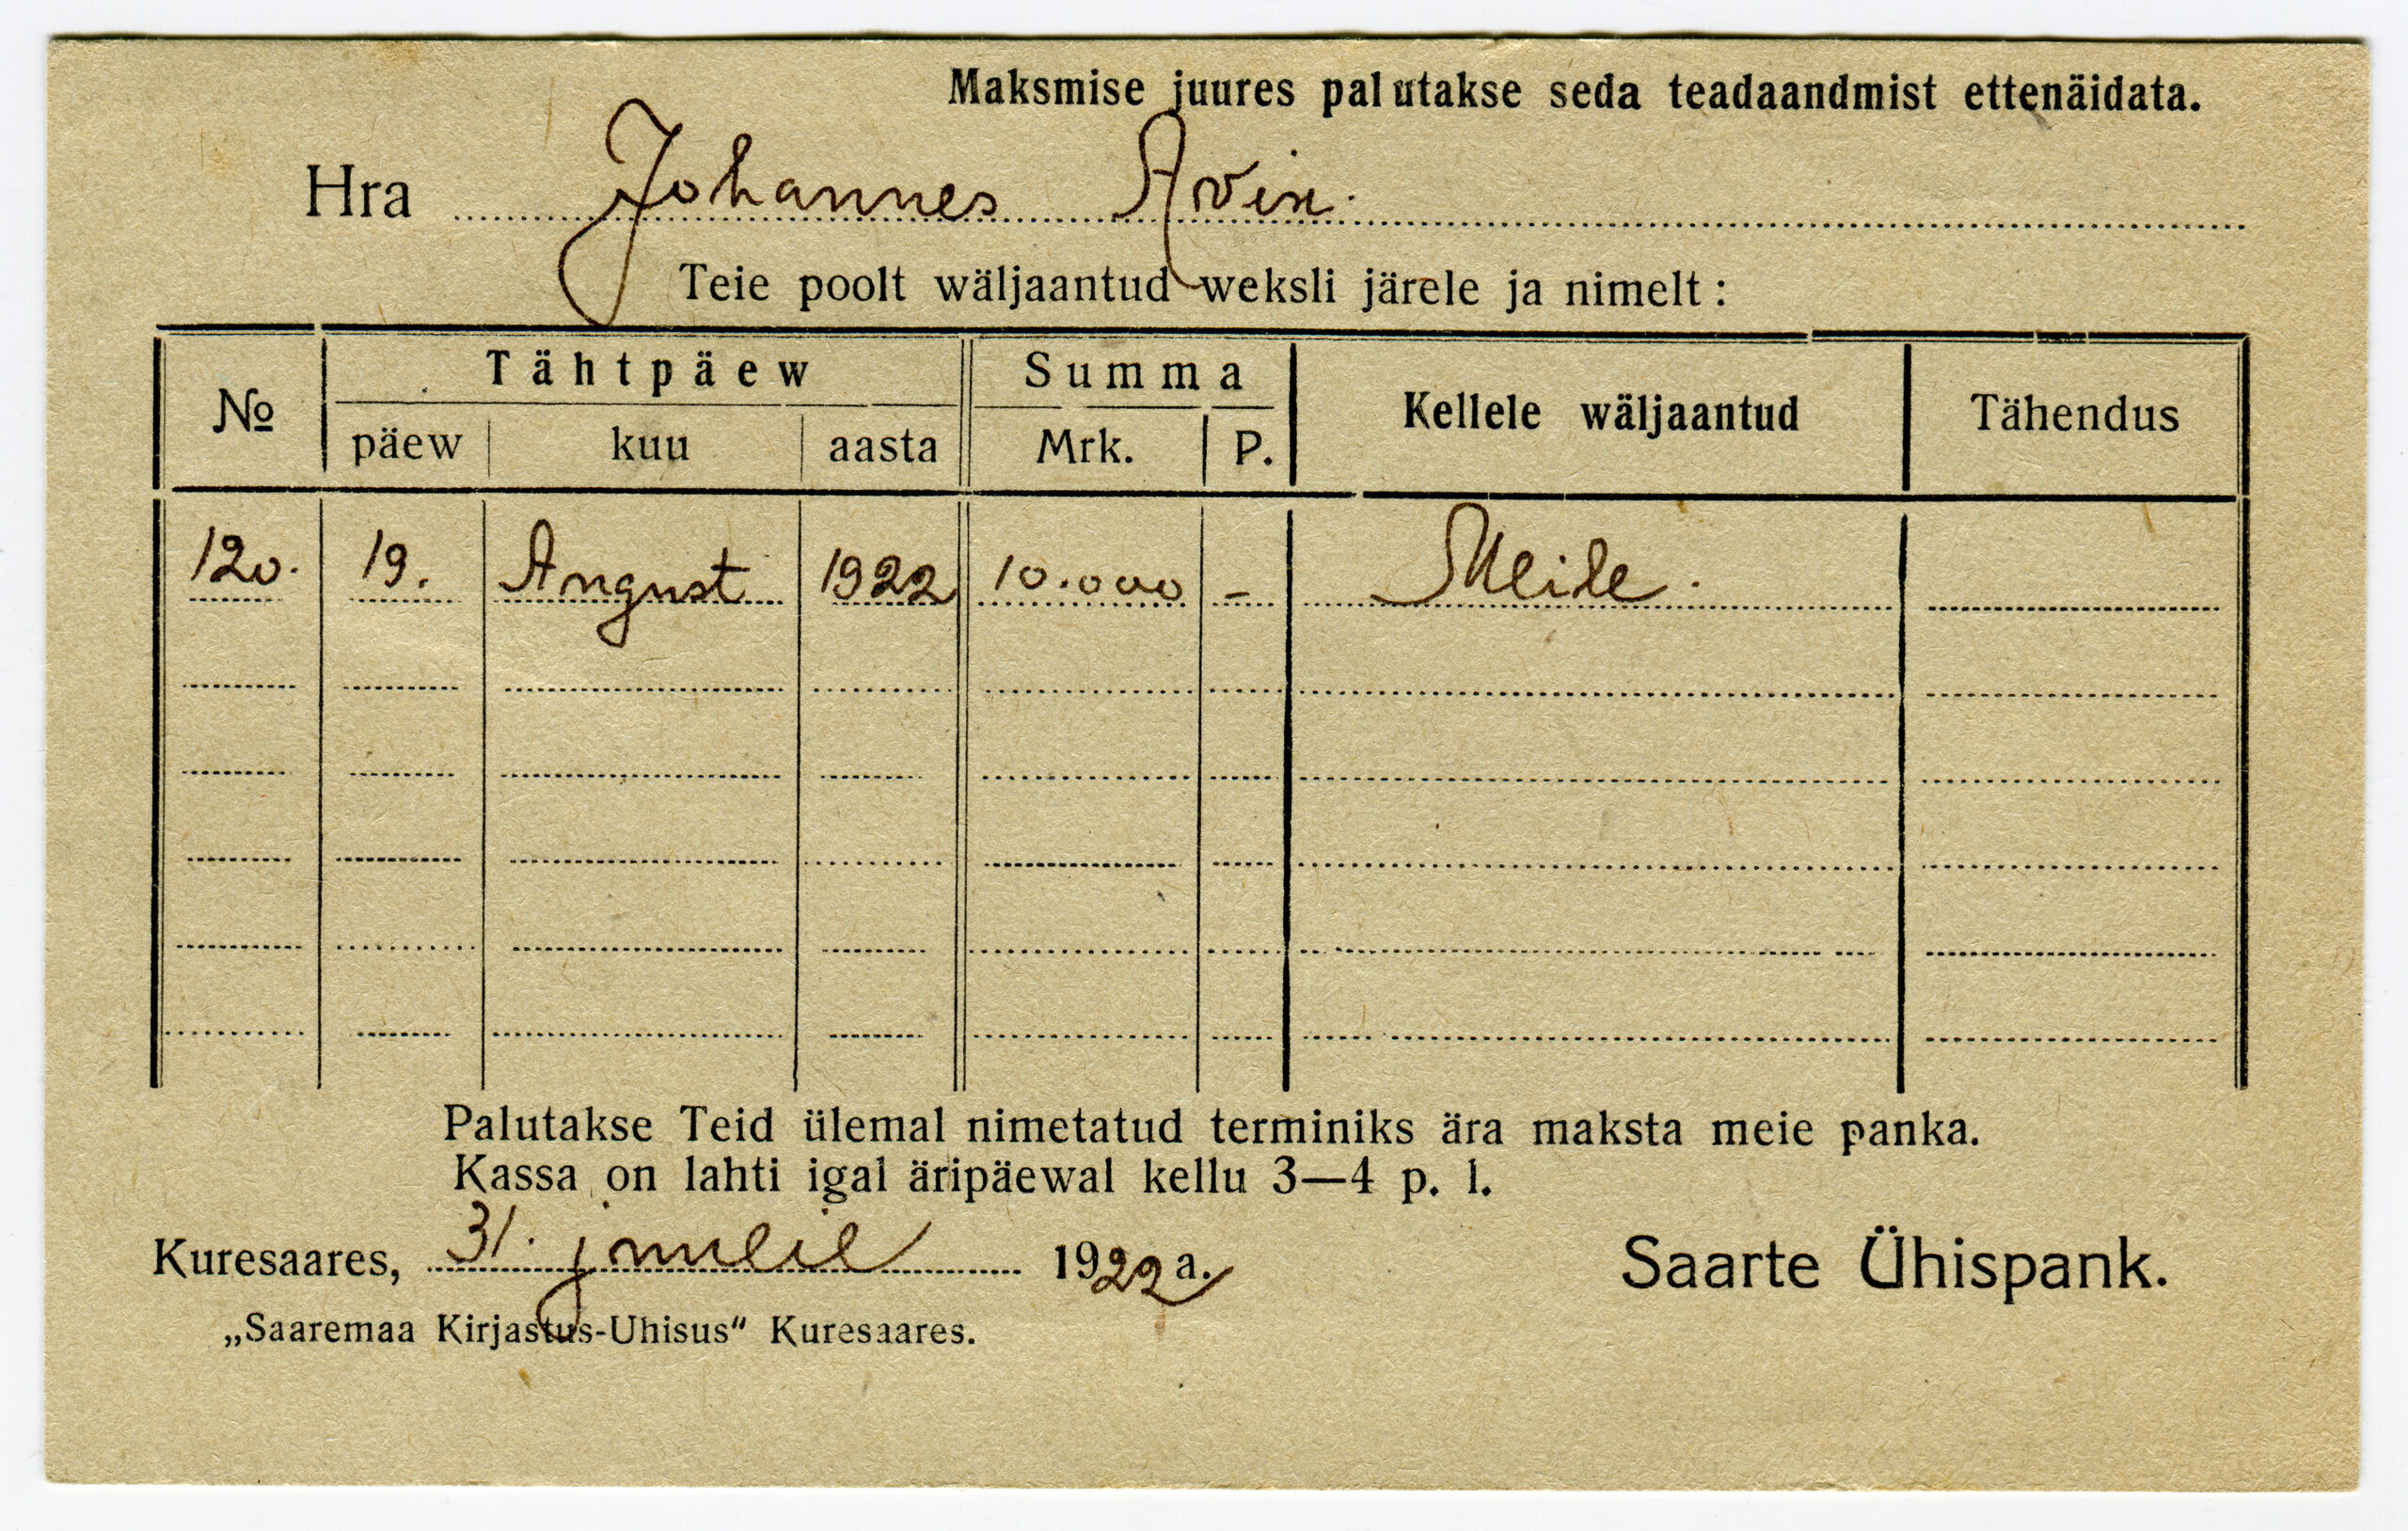 Maksmise juures palutakse seda teadaandmist ettenäidata.
Hra Johannes Avik.
Teie poolt wäljaantud weksli järele ja nimelt:
№ Tähtpäew Summa Kellele wäljaantud Tähendus
päew kuu aasta Mrk. P.
120. 19. August 1922 10.000 – Meile.
Palutakse Teid ülemal nimetatud terminiks ära maksta meie panka.
Kassa on lahti igal äripäewal kellu 3—4 p. l.
Kuresaares, 31. juulil 1922 a. Saarte Ühispank.
„Saaremaa Kirjastus-Uhisus“ Kuresaares.